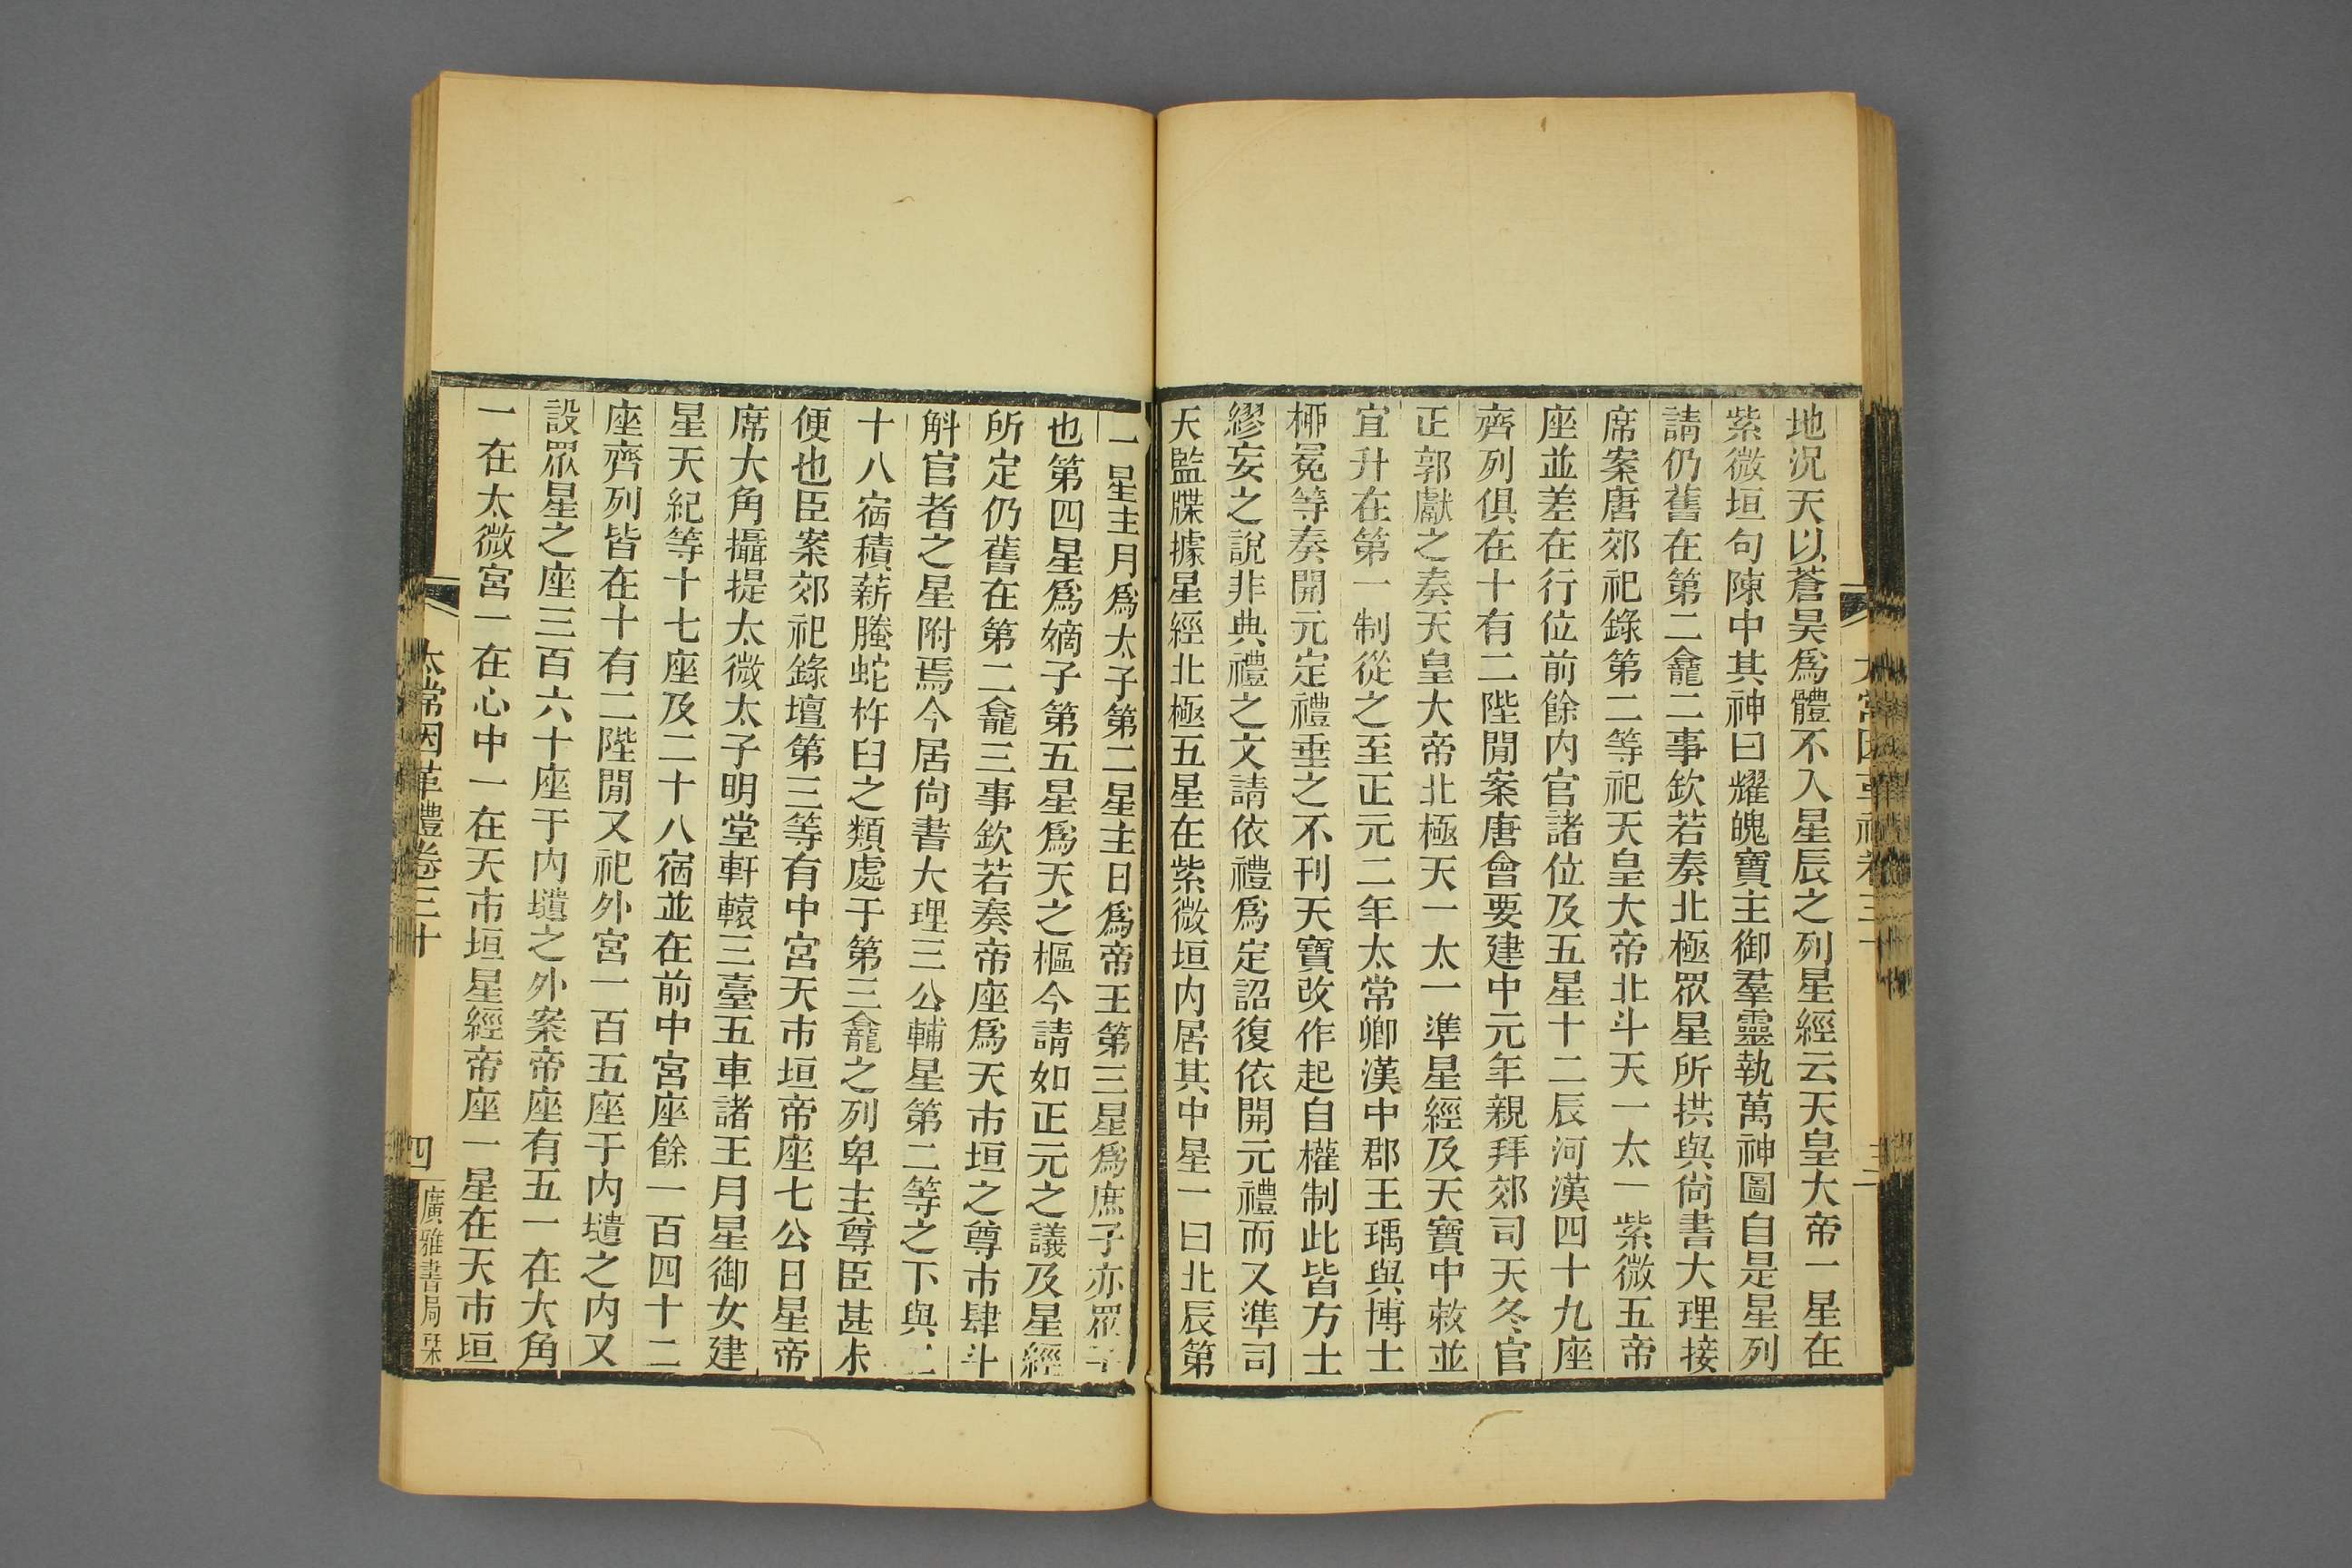 地況天以蒼昊爲體不入星辰之列星經云天皇大帝一星在
紫微垣句陳中其神曰耀魄寶主御羣靈執萬神圖自是星列
請仍舊在第二龕二事欽若奏北極眾星所拱與尙書大理接
席案唐郊祀錄第二等祀天皇大帝北斗天一太一紫微五帝
座並差在行位前餘內官諸位及五星十二辰河漢四十九座
齊列俱在十有二陛閒案唐會要建中元年親拜郊司天冬官
正郭獻之奏天皇大帝北極天一太一準星經及天寶中敕並
宜升在第一制從之至正元二年太常卿漢中郡王瑀與博士
桺冕等奏開元定禮垂之不刊天寶改作起自權制此皆方士
繆妄之說非典禮之文請依禮爲定詔復依開元禮而又準司
天監牒據星經北極五星在紫微垣內居其中星一曰北辰第
一星主月爲太子第二星主日爲帝王第三星爲庶子亦眾子
也第四星爲嫡子第五星爲天之樞今請如正元之議及星經
所定仍舊在第二龕三事欽若奏帝座爲天市垣之尊市肆斗
斛官者之星附焉今居尙書大理三公輔星第二等之下與二
十八宿積薪騰蛇杵臼之類處于第三龕之列卑主尊臣甚未
便也臣案郊祀錄壇第三等有中宮天市垣帝座七公日星帝
席大角攝提太微太子明堂軒轅三臺五車諸王月星御女建
星天紀等十七座及二十八宿並在前中宮座餘一百四十二
座齊列皆在十有二陛閒又祀外宮一百五座于內壝之內又
設眾星之座三百六十座于內壝之外案帝座有五一在大角
一在太微宮一在心中一在天市垣星經帝座一星在天市垣
太常因革禮卷三十
四
廣雅書局栞